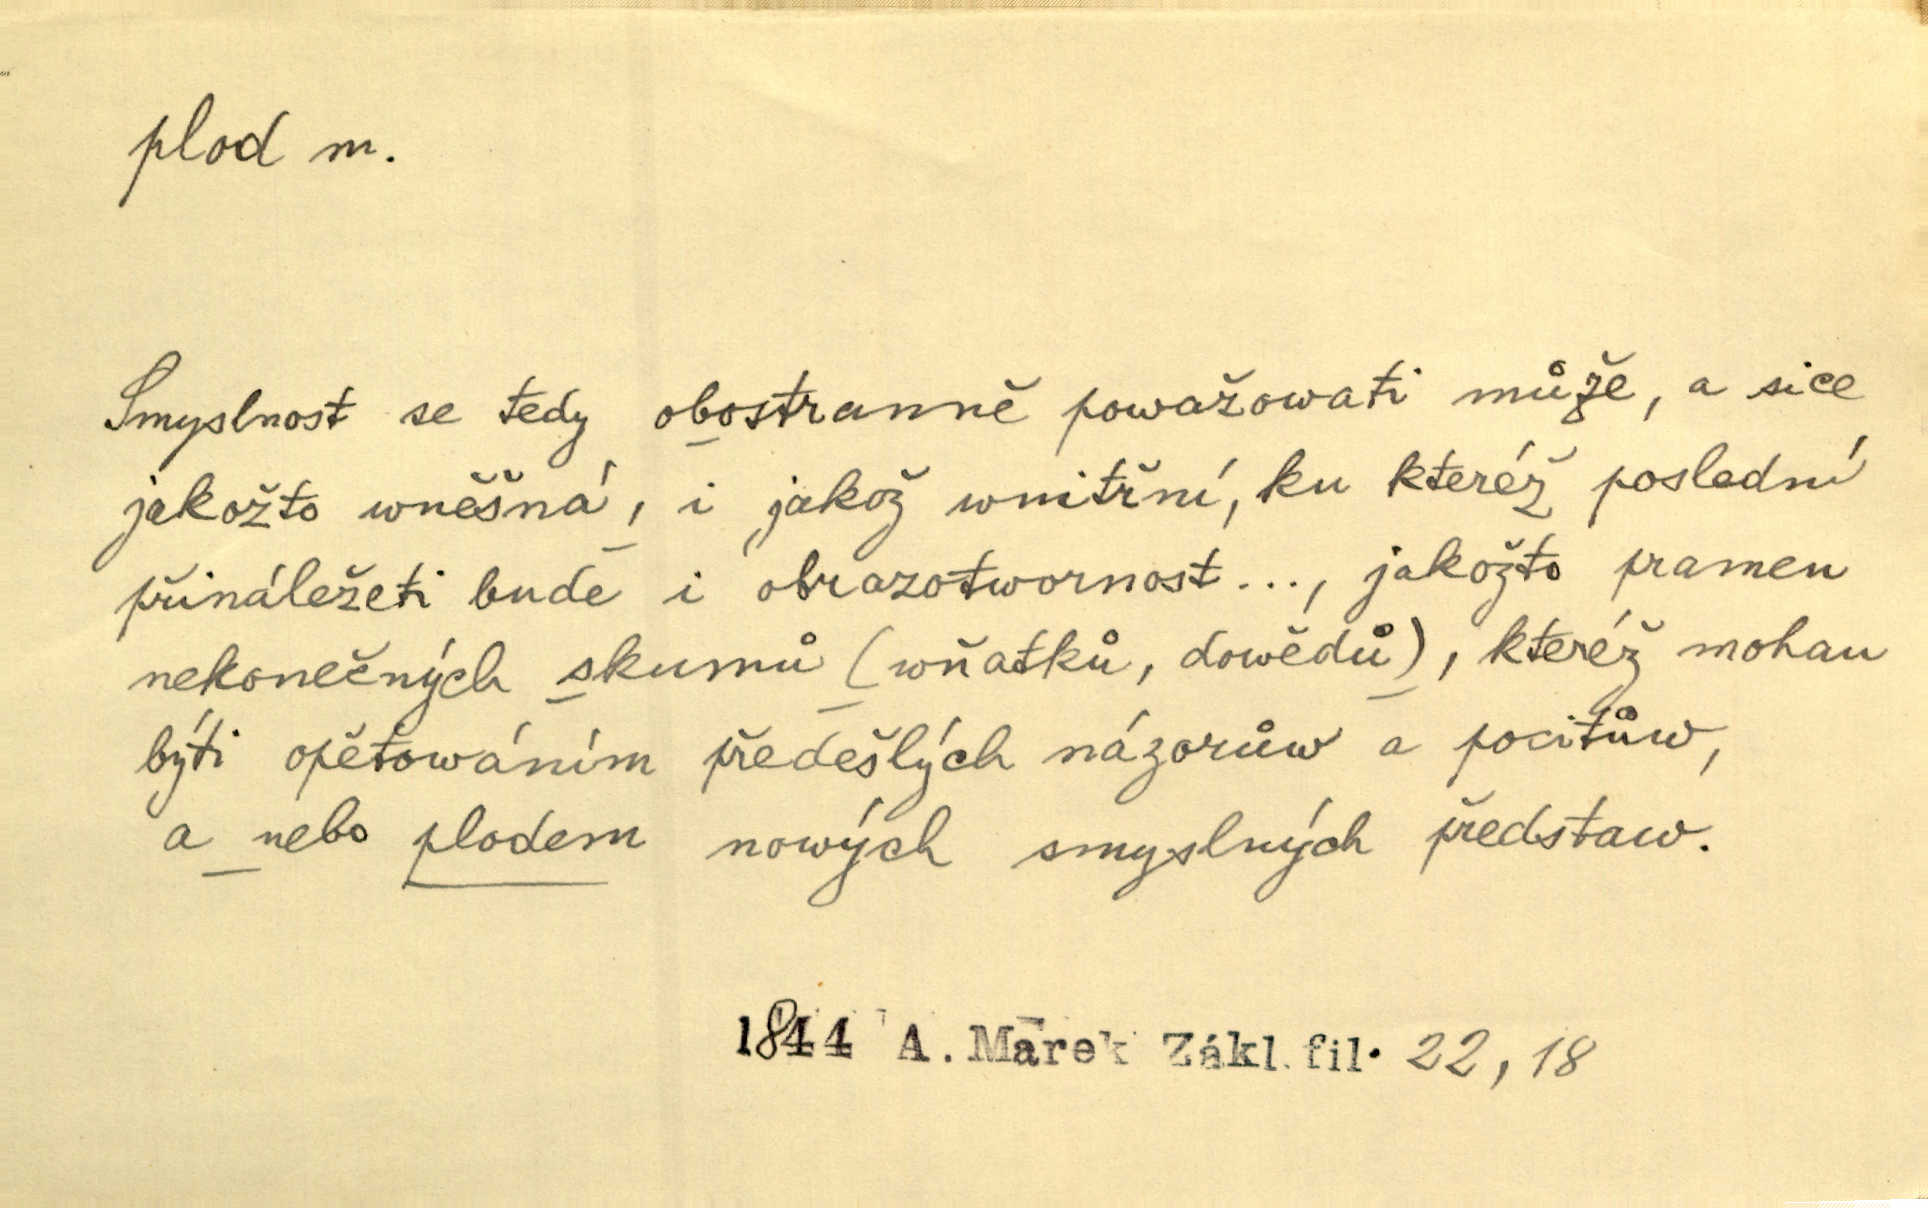 plod m.
Smyslnost se tedy obostranně powažowati může, a sice
jakožto wněšná, i jakož wnitřní, ku kteréž poslední
přináležeti bude i obrazotwornost..., jakožto pramen
nekonečných skumů (wňatků, dowědů), kteréž mohau
býti opětowáním předešlých názorůw a pocitůw,
a nebo plodem nowých smyslných předstaw.
1844 A. Marek Zákl. fil. 22, 18